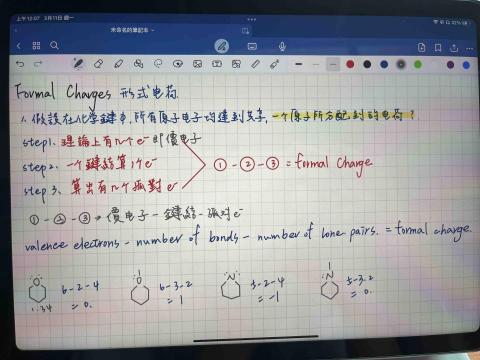 上午12:07 3月11日 週一
未命名的筆記本
Formal Charges 形式电荷
1. 假設在化學鍵中,所有原子电子均達到共享,一个原子所分配到的电荷?
step1. 理論上有几个e⁻ 即價电子
step2. 一个鍵結算1个e⁻
step3. 算出有几个孤對e⁻
①-②-③ = formal charge
①-②-③ → 價电子-鍵結-孤对e⁻
valence electrons - number of bonds - number of lone pairs. = formal charge.
O 6-2-4 = 0.
O 6-3-2 = 1
N 5-2-4 = -1
N 5-3-2 = 0.
1.34